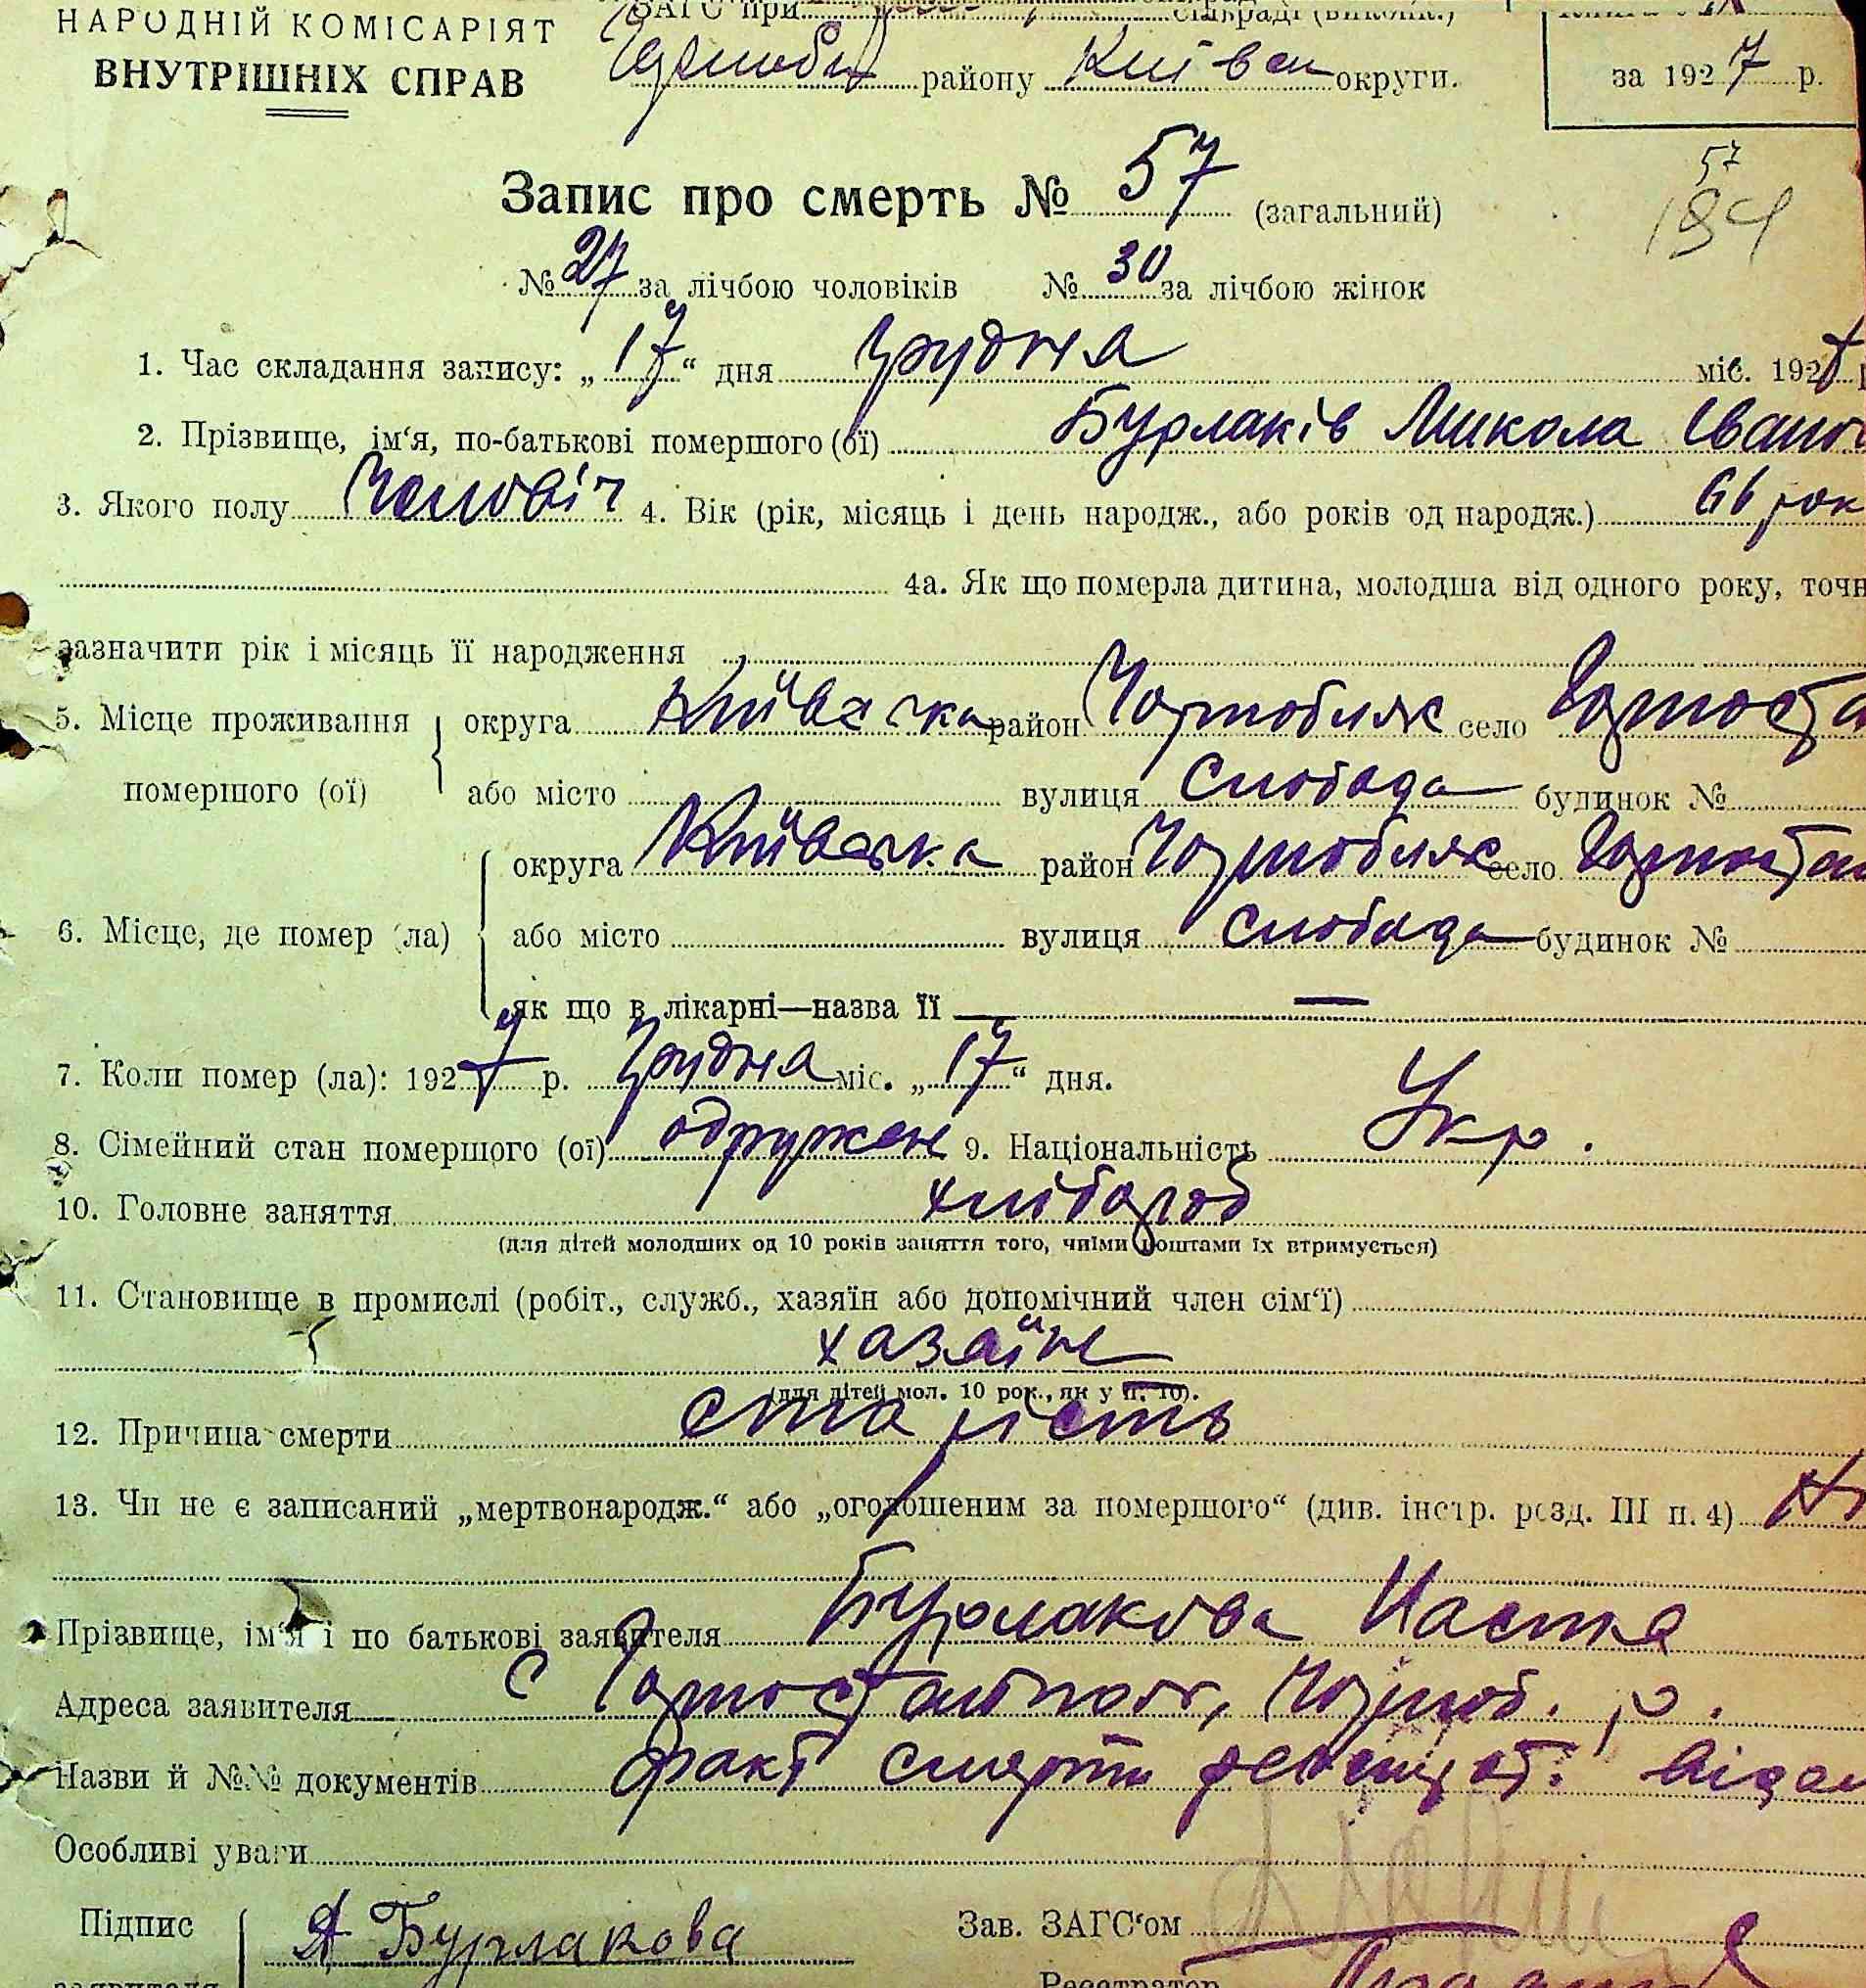 НАРОДНІЙ КОМІСАРІЯТ
ВНУТРІШНІХ СПРАВ
ЗАГС при сільраді (виконк.)
району Київськ округи.
за 1927 р.
Запис про смерть № 57 (загальний)
57
184
№ 27 за лічбою чоловіків № 30 за лічбою жінок
1. Час складання запису: „17“ дня Грудня міс. 1927
2. Прізвище, ім‘я, по-батькові помершого (ої) Бурлаків Микола Івано
3. Якого полу Чоловіч 4. Вік (рік, місяць і день народж., або років од народж.) 66 рок
4а. Як що померла дитина, молодша від одного року, точн
зазначити рік і місяць її народження
5. Місце проживання округа Київська район Чорнобильск село Горноста
помершого (ої) або місто вулиця Слобода будинок №
округа Київська район Чорнобильск село Горностай
6. Місце, де помер (ла) або місто вулиця Слобода будинок №
як що в лікарні—назва її —
7. Коли помер (ла): 1927 р. Грудня міс. „17“ дня.
8. Сімейний стан помершого (ої) одружен 9. Національність Укр.
10. Головне заняття хлібороб
(для дітей молодших од 10 років заняття того, чиїми коштами їх втримується)
11. Становище в промислі (робіт., служб., хазяїн або допомічний член сім‘ї)
хазяїн
(для дітей мол. 10 рок., як у п. 10).
12. Причина смерти старість
13. Чи не є записаний „мертвонародж.“ або „оголошеним за помершого“ (див. інстр. розд. III п. 4)
Прізвище, ім‘я і по батькові заявителя Бурлакова Наста
Адреса заявителя С Горностайполь, Чорноб. р.
Назви й №№ документів факт смерти
Особливі уваги
Підпис Бурлакова Зав. ЗАГС‘ом
заявителя Реєстратор